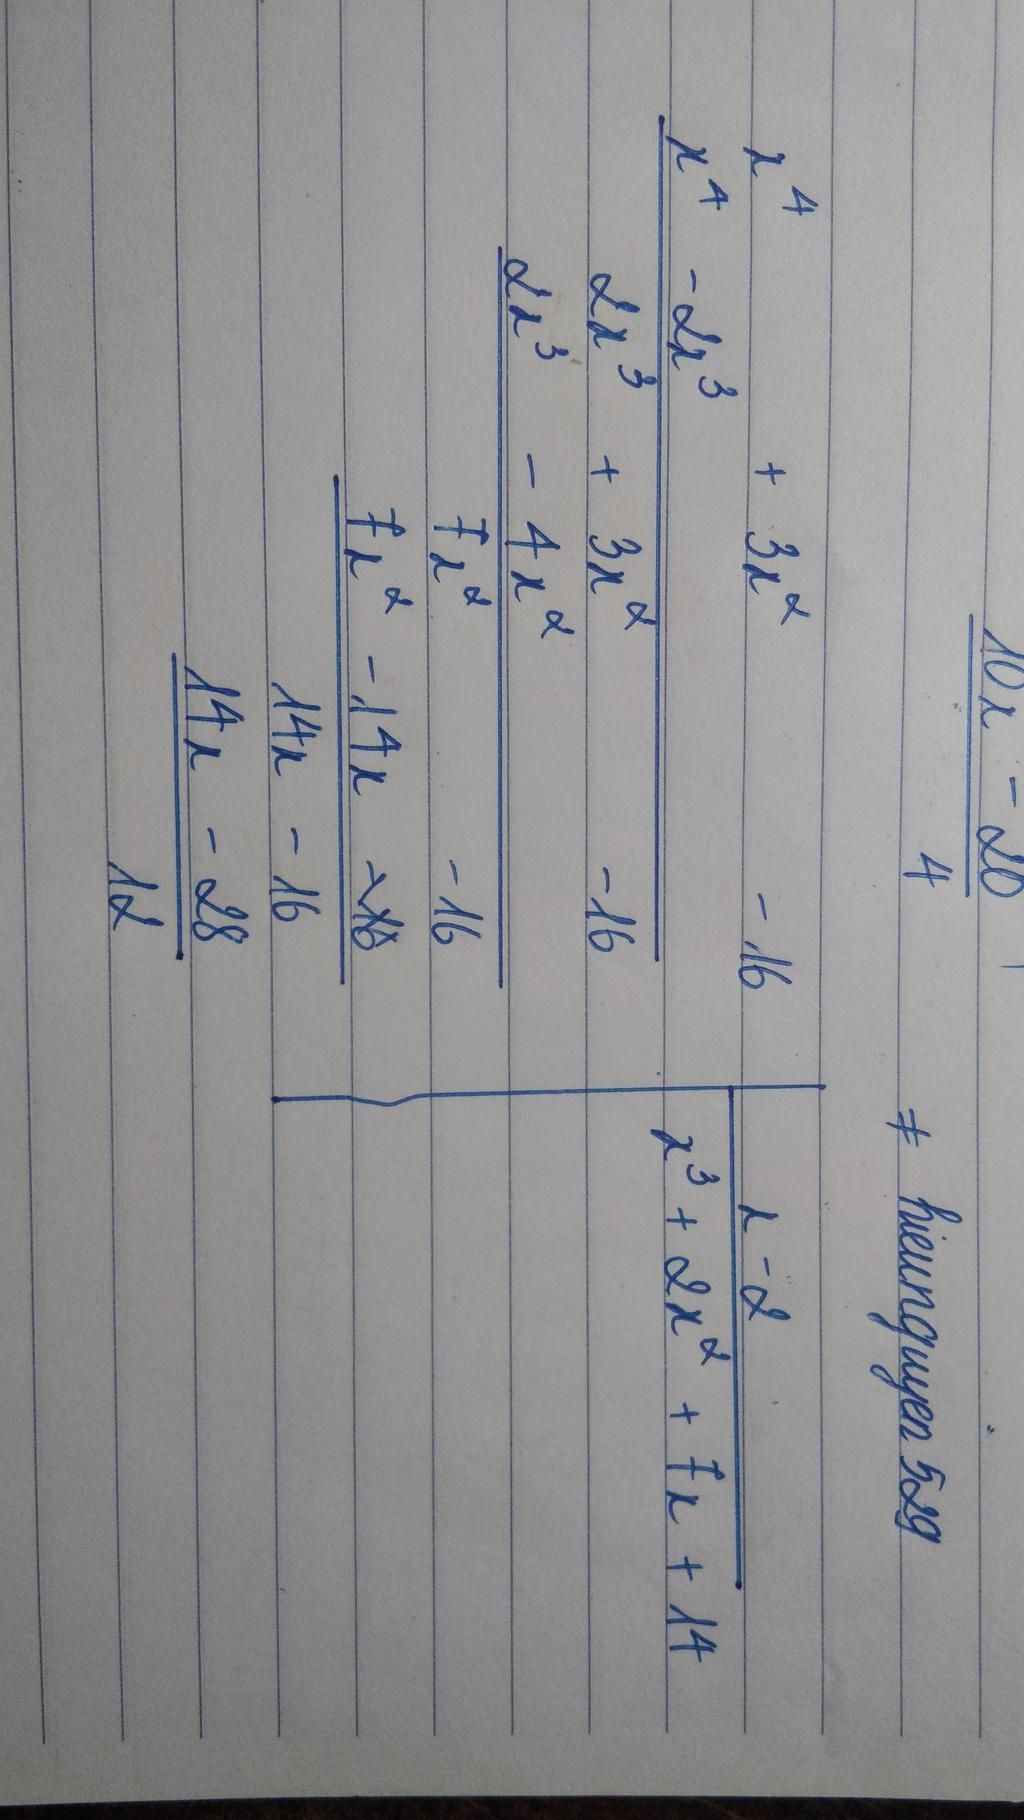 10x - 20
4
≠ hieunguyen529
x⁴ + 3x² - 16
x - 2
x⁴ - 2x³
x³ + 2x² + 7x + 14
2x³ + 3x² - 16
2x³ - 4x²
7x² - 16
7x² - 14x
14x - 16
14x - 28
12